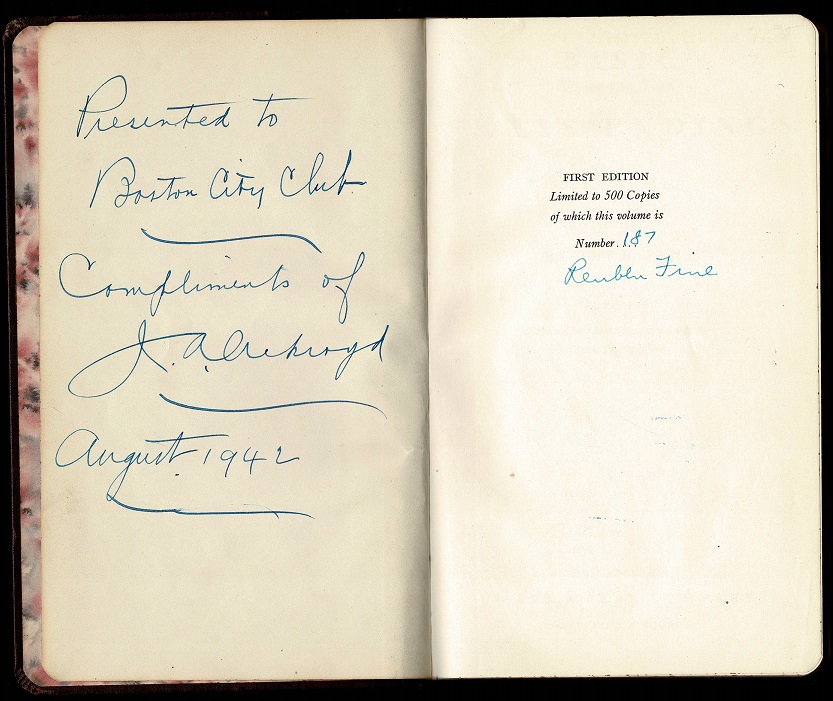 Presented to
Boston City Club
Compliments of
J. A. Ackroyd
August 1942
FIRST EDITION
Limited to 500 Copies
of which this volume is
Number 187
Reuben Fine